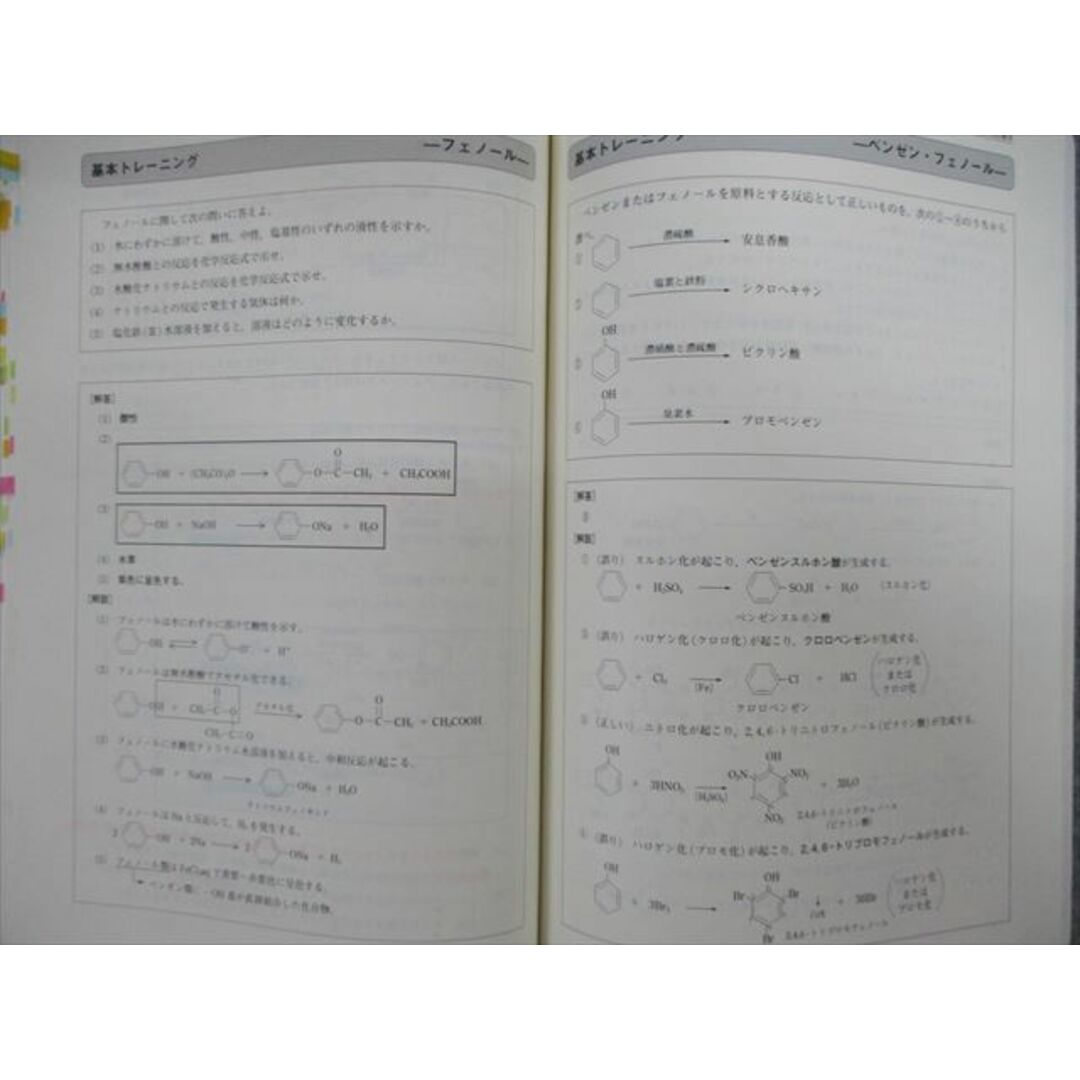 基本トレーニング
―フェノール―
フェノールに関して次の問いに答えよ。
(1) 水にわずかに溶けて, 酸性, 中性, 塩基性のいずれの液性を示すか。
(2) 無水酢酸との反応を化学反応式で示せ。
(3) 水酸化ナトリウムとの反応を化学反応式で示せ。
(4) ナトリウムとの反応で発生する気体は何か。
(5) 塩化鉄(Ⅲ)水溶液を加えると, 溶液はどのように変化するか。
[解答]
(1) 酸性
(2)
OH + (CH₃CO)₂O → O-C-CH₃ + CH₃COOH
O
(3)
OH + NaOH → ONa + H₂O
(4) 水素
(5) 紫色に呈色する。
[解説]
(1) フェノールは水にわずかに溶けて酸性を示す。
OH ⇄ O⁻ + H⁺
(2) フェノールは無水酢酸でアセチル化できる。
OH + CH₃-C-O アセチル化 → O-C-CH₃ + CH₃COOH
CH₃-C=O
(3) フェノールに水酸化ナトリウム水溶液を加えると, 中和反応が起こる。
OH + NaOH → ONa + H₂O
ナトリウムフェノキシド
(4) フェノールはNaと反応して, H₂を発生する。
2 OH + 2Na → 2 ONa + H₂
(5) フェノール類は
ベンゼン環に-OH基が直接結合した化合物
基本トレーニング
―ベンゼン・フェノール―
ベンゼンまたはフェノールを原料とする反応として正しいものを, 次の①~④のうちから
選べ。
① 濃硫酸 → 安息香酸
② 塩素と鉄粉 → シクロヘキサン
OH
③ 濃硝酸と濃硫酸 → ピクリン酸
OH
④ 臭素水 → ブロモベンゼン
[解答]
③
[解説]
① (誤り) スルホン化が起こり, ベンゼンスルホン酸が生成する。
+ H₂SO₄ → SO₃H + H₂O (スルホン化)
ベンゼンスルホン酸
② (誤り) ハロゲン化(クロロ化)が起こり, クロロベンゼンが生成する。
+ Cl₂ → [Fe] Cl + HCl (ハロゲン化 または クロロ化)
クロロベンゼン
③ (正しい) ニトロ化が起こり, 2,4,6-トリニトロフェノール(ピクリン酸)が生成する。
OH OH
+ 3HNO₃ → [H₂SO₄] O₂N NO₂ + 3H₂O
NO₂ 2,4,6-トリニトロフェノール
(ピクリン酸)
④ (誤り) ハロゲン化(ブロモ化)が起こり, 2,4,6-トリブロモフェノールが生成する。
OH OH
+ 3Br₂ → Br Br ↓ + 3HBr (ハロゲン化 または ブロモ化)
Br 2,4,6-トリブロモフェノール